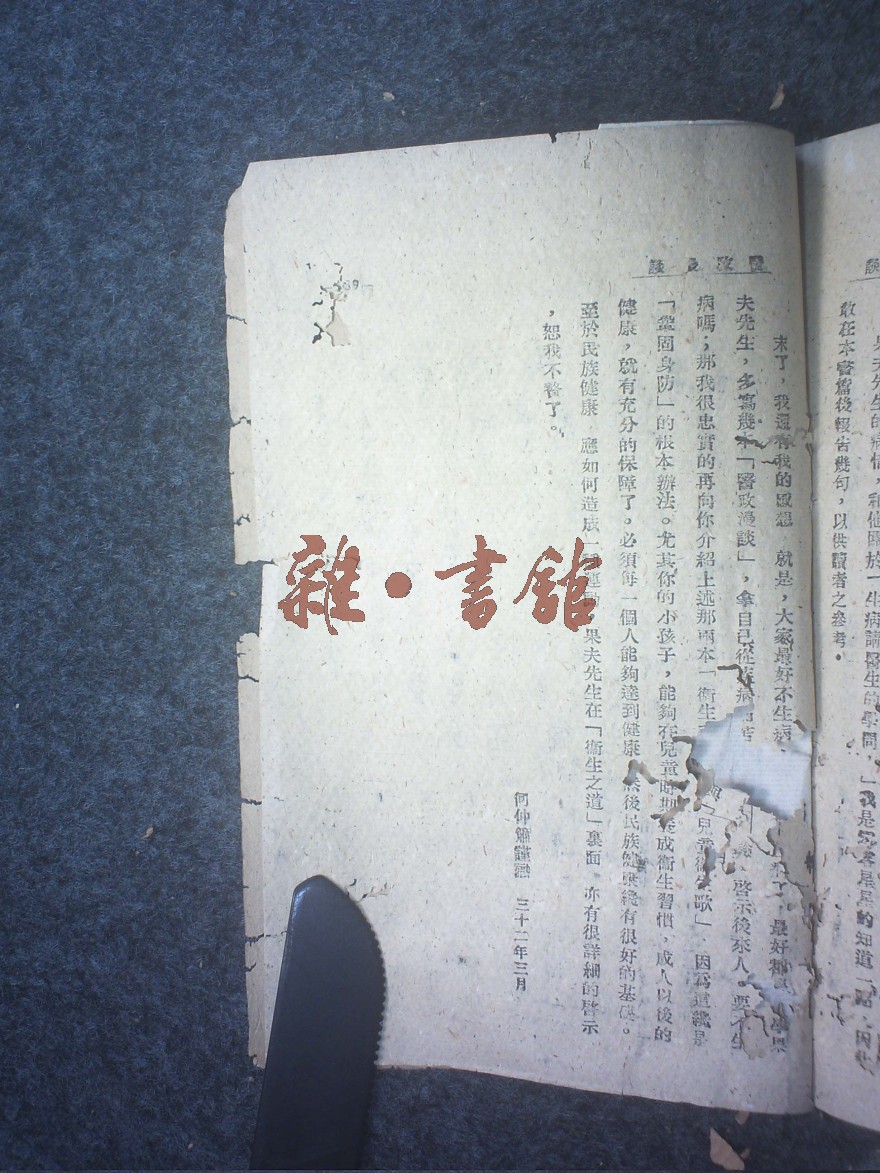 敢在本書篇後報告幾句，以供讀者之參考。
談漫政醫
末了，我還有我的感想 就是，大家最好不生病，最好
夫先生，多寫幾本「醫政漫談」，拿自己從 病 啓示後來人。要不生
病嗎；那我很忠實的再向你介紹上述那兩本一衛生 兒童衛生歌」 因爲這纔是
「鞏固身防」的根本辦法。尤其你的小孩子，能夠在兒童時期養成衛生習慣，成人以後的
健康，就有充分的保障了。必須每一個人能夠達到健康 然後民族健康纔有很好的基礎。
至於民族健康 應如何造成一 運動 果夫先生在「衛生之道」裏面 亦有很詳細的啓示
，恕我不贅了。
何仲 謹 三十二年三月
雜·書館